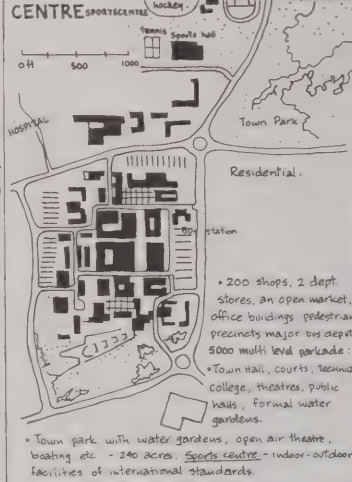 CENTRE SPORTSCENTRE
hockey.
tennis Sports hall
0 ft 500 1000
HOSPITAL
Town Park
Residential.
Bus station
• 200 shops, 2 dept.
stores, an open market,
office buildings pedestrian
precincts major bus depot
5000 multi level parkade:
• Town Hall, courts, technical
college, theatres, public
halls, formal water
gardens.
• Town park with water gardens, open air theatre,
boating etc - 240 acres. Sports centre - indoor-outdoor
facilities of international standards.